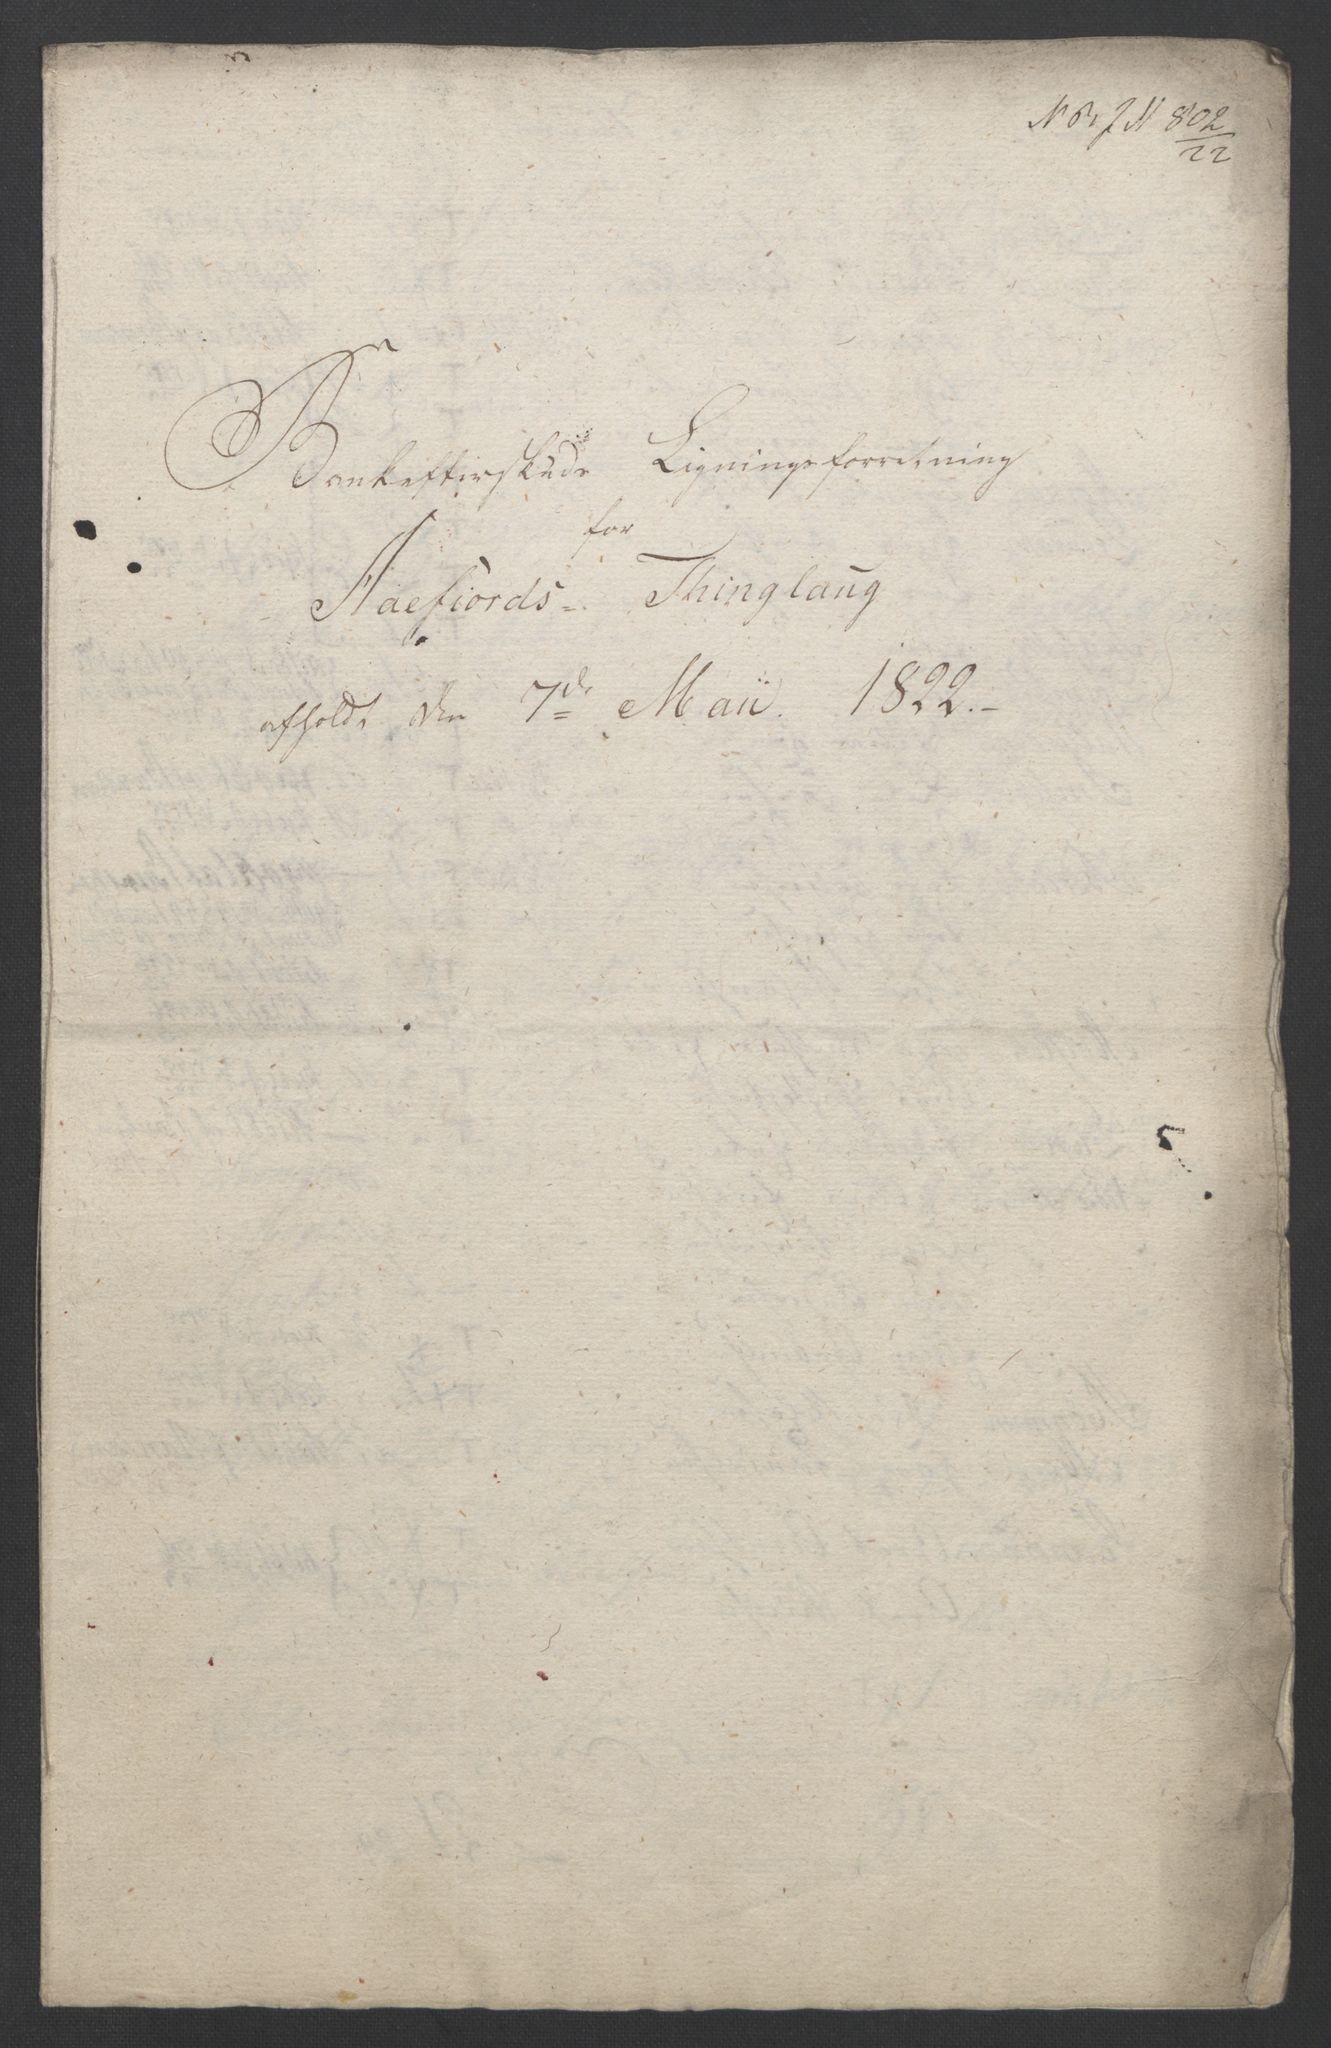 N 6. J N 802/22
Bankefterskuds Ligningsforretning
for
Aaefiords- Thinglaug
afholdt den 7de Maii 1822.-